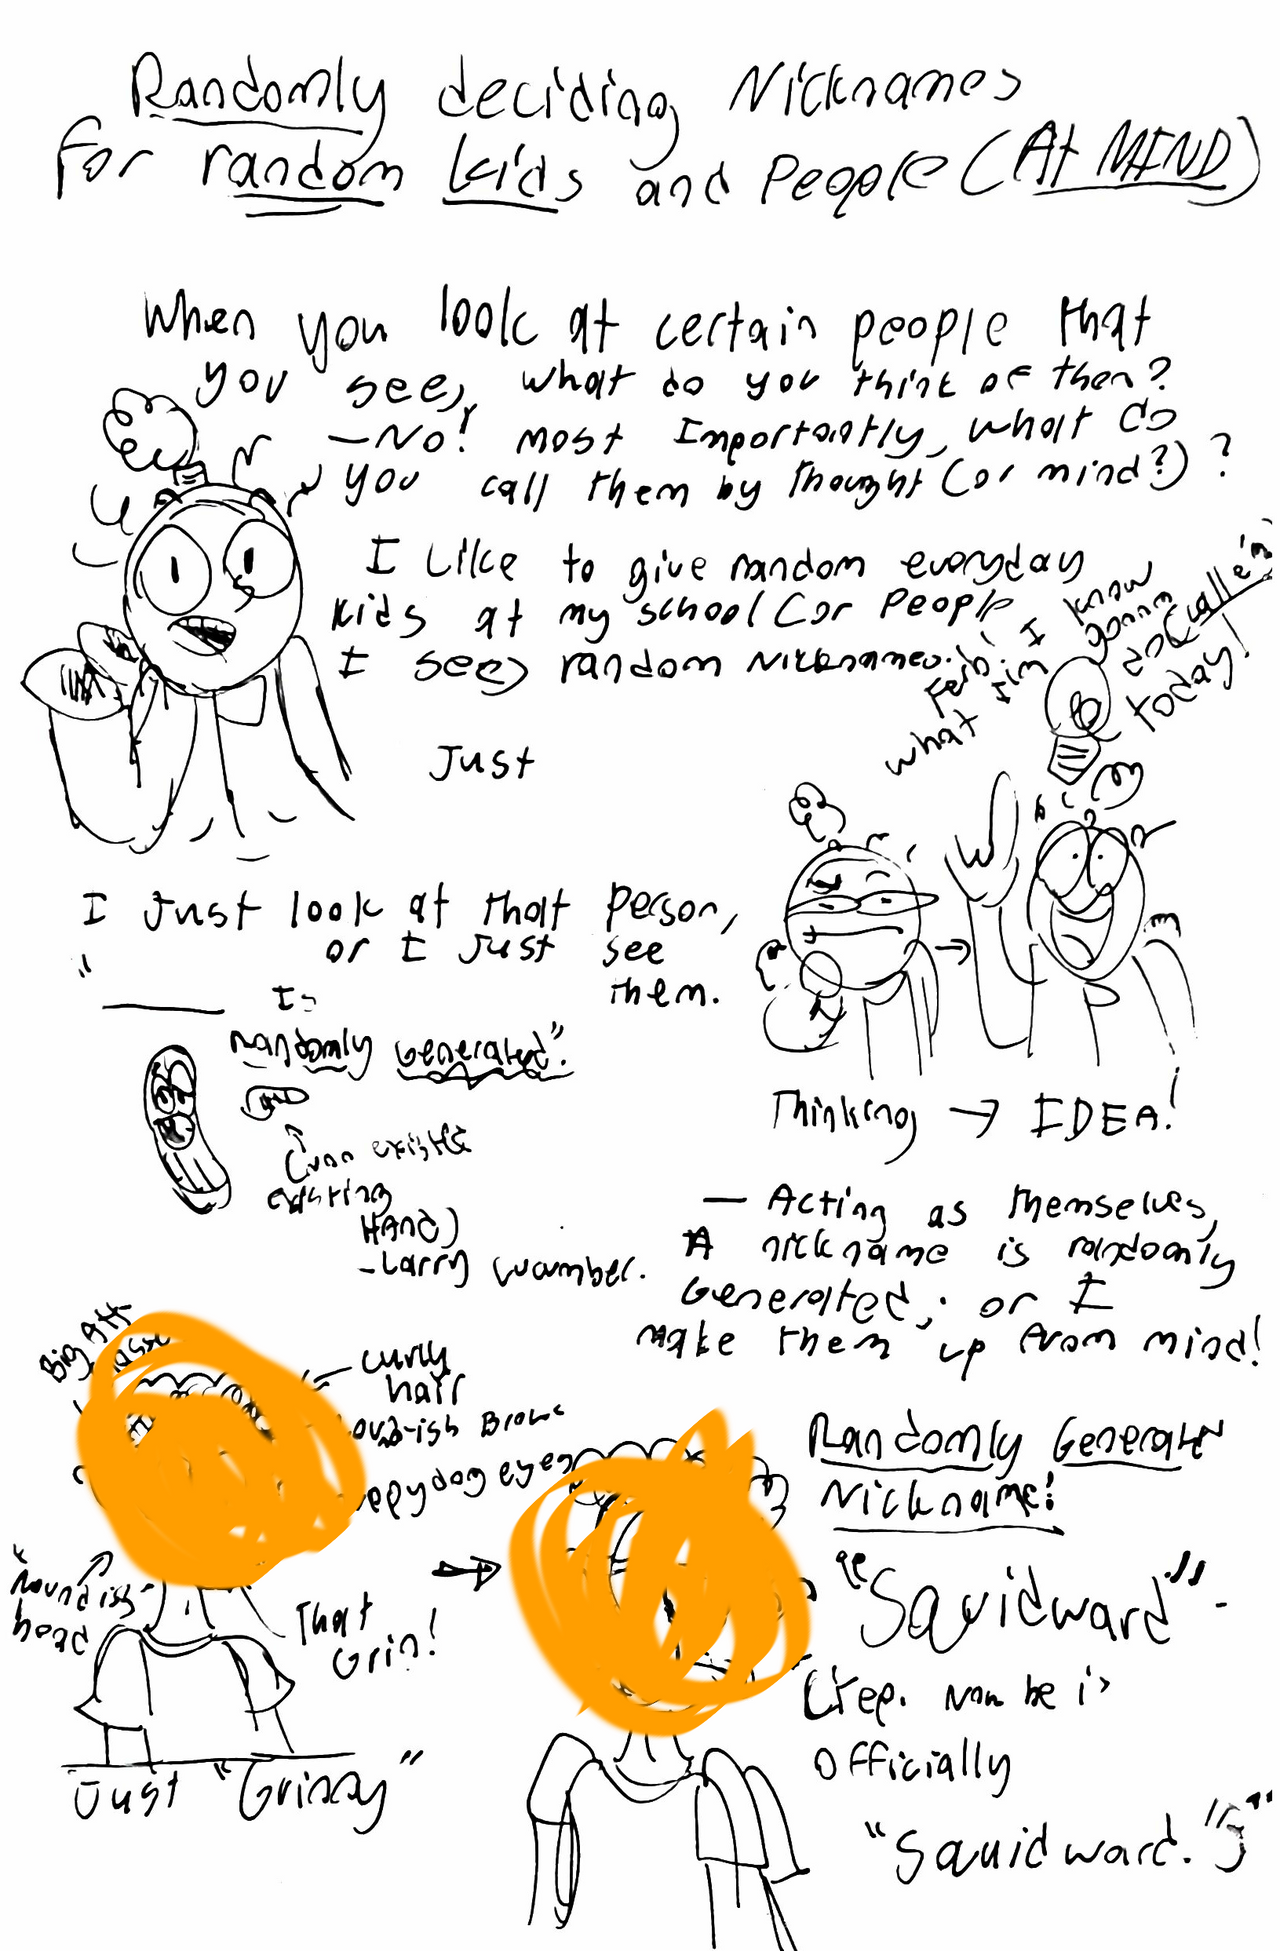 Randomly deciding Nicknames
For random kids and People (At MIND)
When you look at certain people that
you see, what do you think of them?
—No! most Importantly, what do
you call them by thought (or mind?)?
I Like to give random everyday
kids at my school (or People
I see) random Nicknames.
Just
Ferb! I know
what I'm gonna
today!
I Just look at that Person,
or I Just see
them.
"
Randomly Generated".
HAND)
-Larry cucumber.
Thinking → IDEA!
— Acting as themselves,
A nickname is randomly
Generated; or I
make them up from mind!
Big
curly
hair
dog eyes
"Roundish-
head
That
Grin!
Just "Grinny"
Randomly Generated
Nickname!
"Squidward"-
Now he is
Officially
"Squidward."